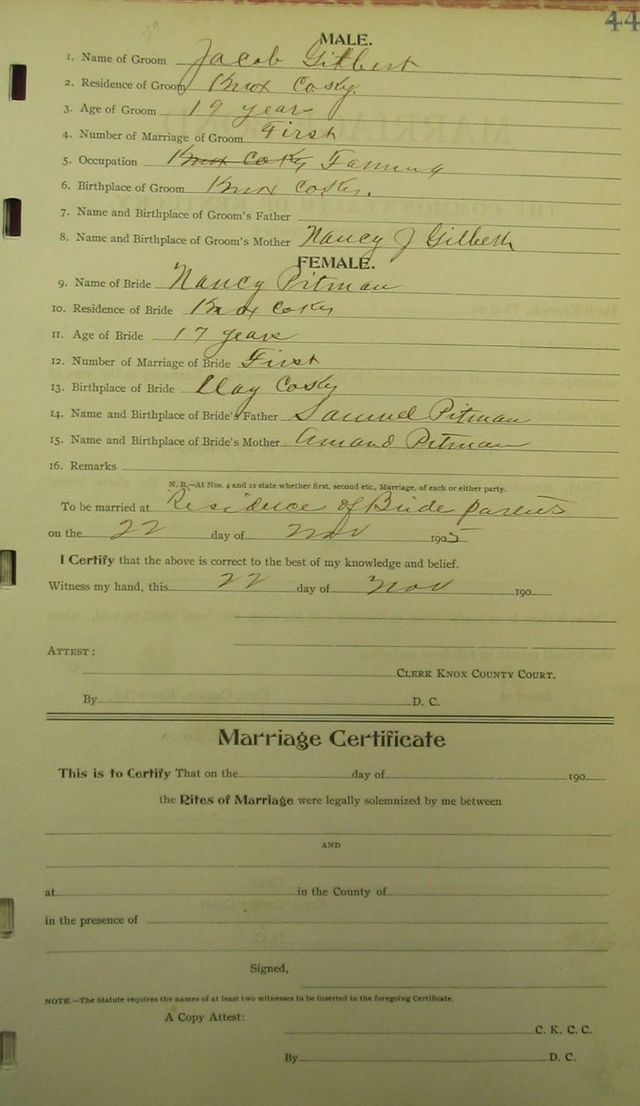 44
MALE.
1. Name of Groom Jacob Gilbert
2. Residence of Groom Knox Co Ky.
3. Age of Groom 19 years
4. Number of Marriage of Groom First
5. Occupation Knox Co Ky Farming
6. Birthplace of Groom Knox Co Ky.
7. Name and Birthplace of Groom's Father
8. Name and Birthplace of Groom's Mother Nancy J Gilbert
FEMALE.
9. Name of Bride Nancy Pitman
10. Residence of Bride Knox Co Ky
11. Age of Bride 17 years
12. Number of Marriage of Bride First
13. Birthplace of Bride Clay Co Ky
14. Name and Birthplace of Bride's Father Samuel Pitman
15. Name and Birthplace of Bride's Mother Amand Pitman
16. Remarks
N. B.—At Nos. 4 and 12 state whether first, second etc., Marriage, of each or either party.
To be married at Residence of Bride parents
on the 22 day of Nov 1905
I Certify that the above is correct to the best of my knowledge and belief.
Witness my hand, this 22 day of Nov 190
ATTEST:
CLERK KNOX COUNTY COURT.
By D. C.
Marriage Certificate
This is to Certify That on the day of 190
the Rites of Marriage were legally solemnized by me between
AND
at in the County of
in the presence of
Signed,
NOTE.—The Statute requires the names of at least two witnesses to be inserted in the foregoing Certificate.
A Copy Attest:
C. K. C. C.
By D. C.